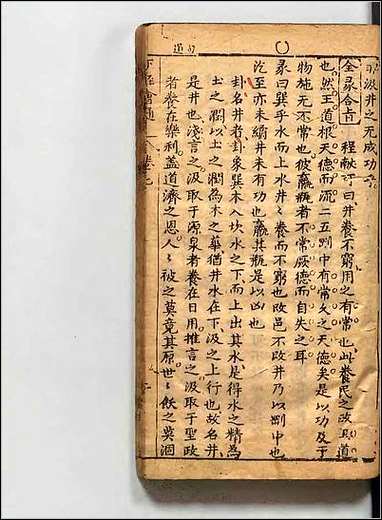 汲井之无成功
全彖合旨 程敬可曰井養不窮用之有常也此養民之政王道
也然王道根天德而流二五剛中有常久之天德矣是以功及于
物施无不常也彼羸瓶者不常厥德而自失之耳
彖曰巽乎水而上水井井養而不窮也改邑不改井乃以剛中也
汔至亦未繘井未有功也羸其瓶是以凶也
卦名井者卦象巽木入坎水之下而上出其水是得水之精為
土之潤以土之潤為木之華猶井水在下汲之上行也故名井
是井也淺言之汲取于源泉者養在日用推言之汲取于聖政
者養在樂利蓋道濟之恩人人被之莫竟其原世世飲之莫涸